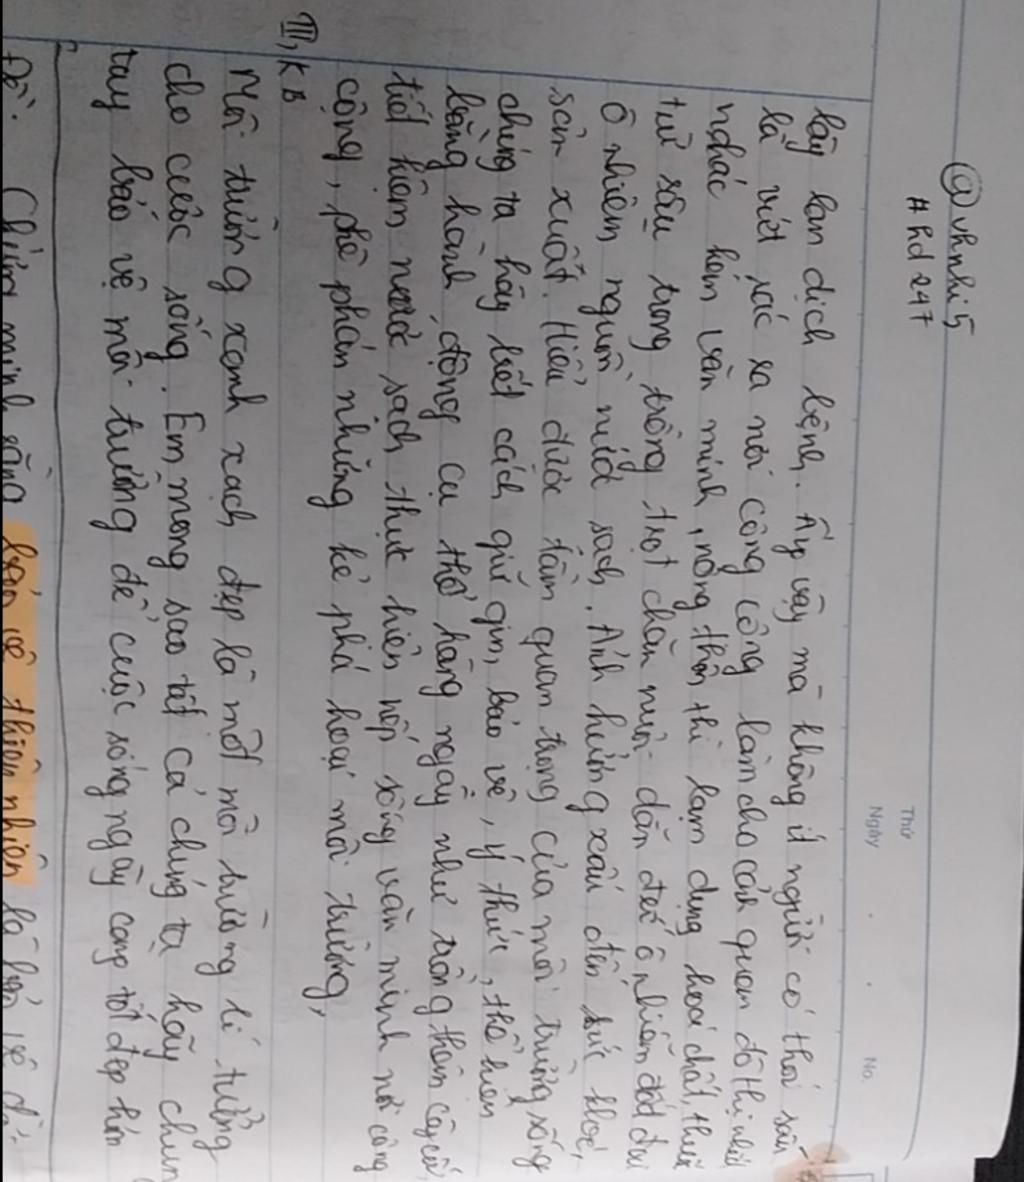 @vhnhi5
#hd247
Thứ
Ngày . . No.
lây lan dịch bệnh. Ấy vậy mà không ít người có thói xấu
là vứt rác ra nơi công cộng làm cho cảnh quan đô thị
nhếch hơn văn minh, nông thôn thì lạm dụng hoá chất, thuốc
trừ sâu trong trồng trọt chăn nuôi dẫn đến ô nhiễm đất đai
ô nhiễm nguồn nước sạch. Ảnh hưởng xấu đến sức khoẻ,
sản xuất. Hiểu được tầm quan trọng của môi trường sống
chúng ta hãy biết cách giữ gìn, bảo vệ, ý thức, thể hiện
bằng hành động cụ thể hằng ngày như trồng thêm cây cối,
tiết kiệm nước sạch thực hiện nếp sống văn minh nơi công
cộng, phê phán những kẻ phá hoại môi trường,
III, KB
Môi trường xanh sạch đẹp là một môi trường lí tưởng
cho cuộc sống. Em mong sao tất cả chúng ta hãy chun
tay bảo vệ môi trường để cuộc sống ngày càng tốt đẹp hơn
Đề: Chứng minh rằng bảo vệ thiên nhiên là bảo vệ